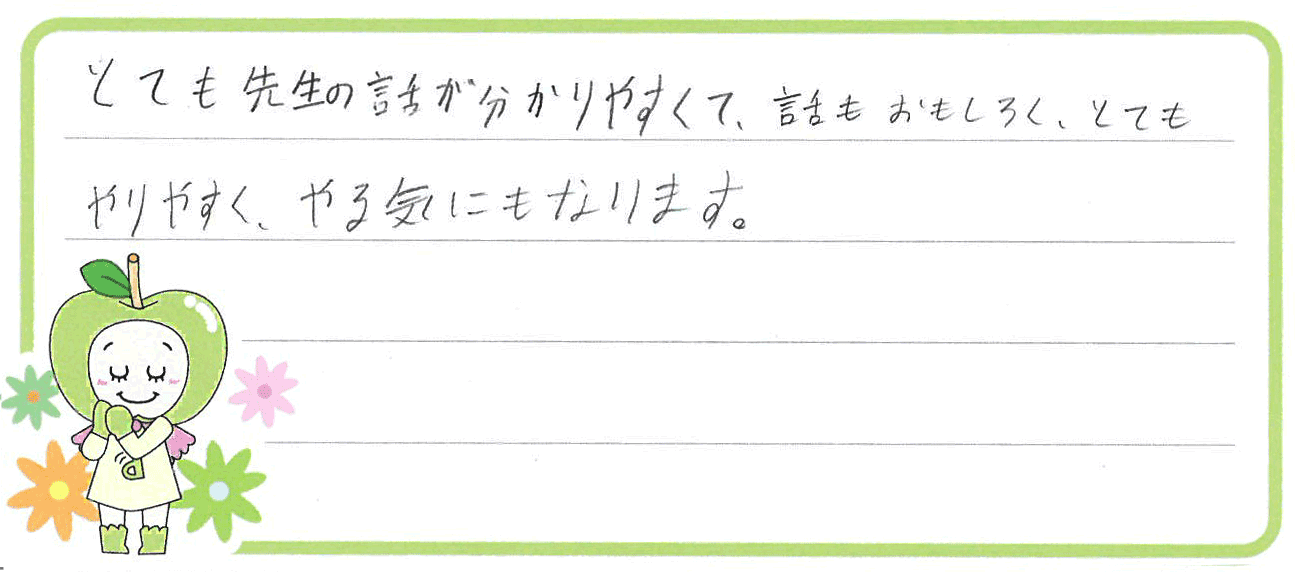 とても先生の話が分かりやすくて、話もおもしろく、とても
やりやすく、やる気にもなります。